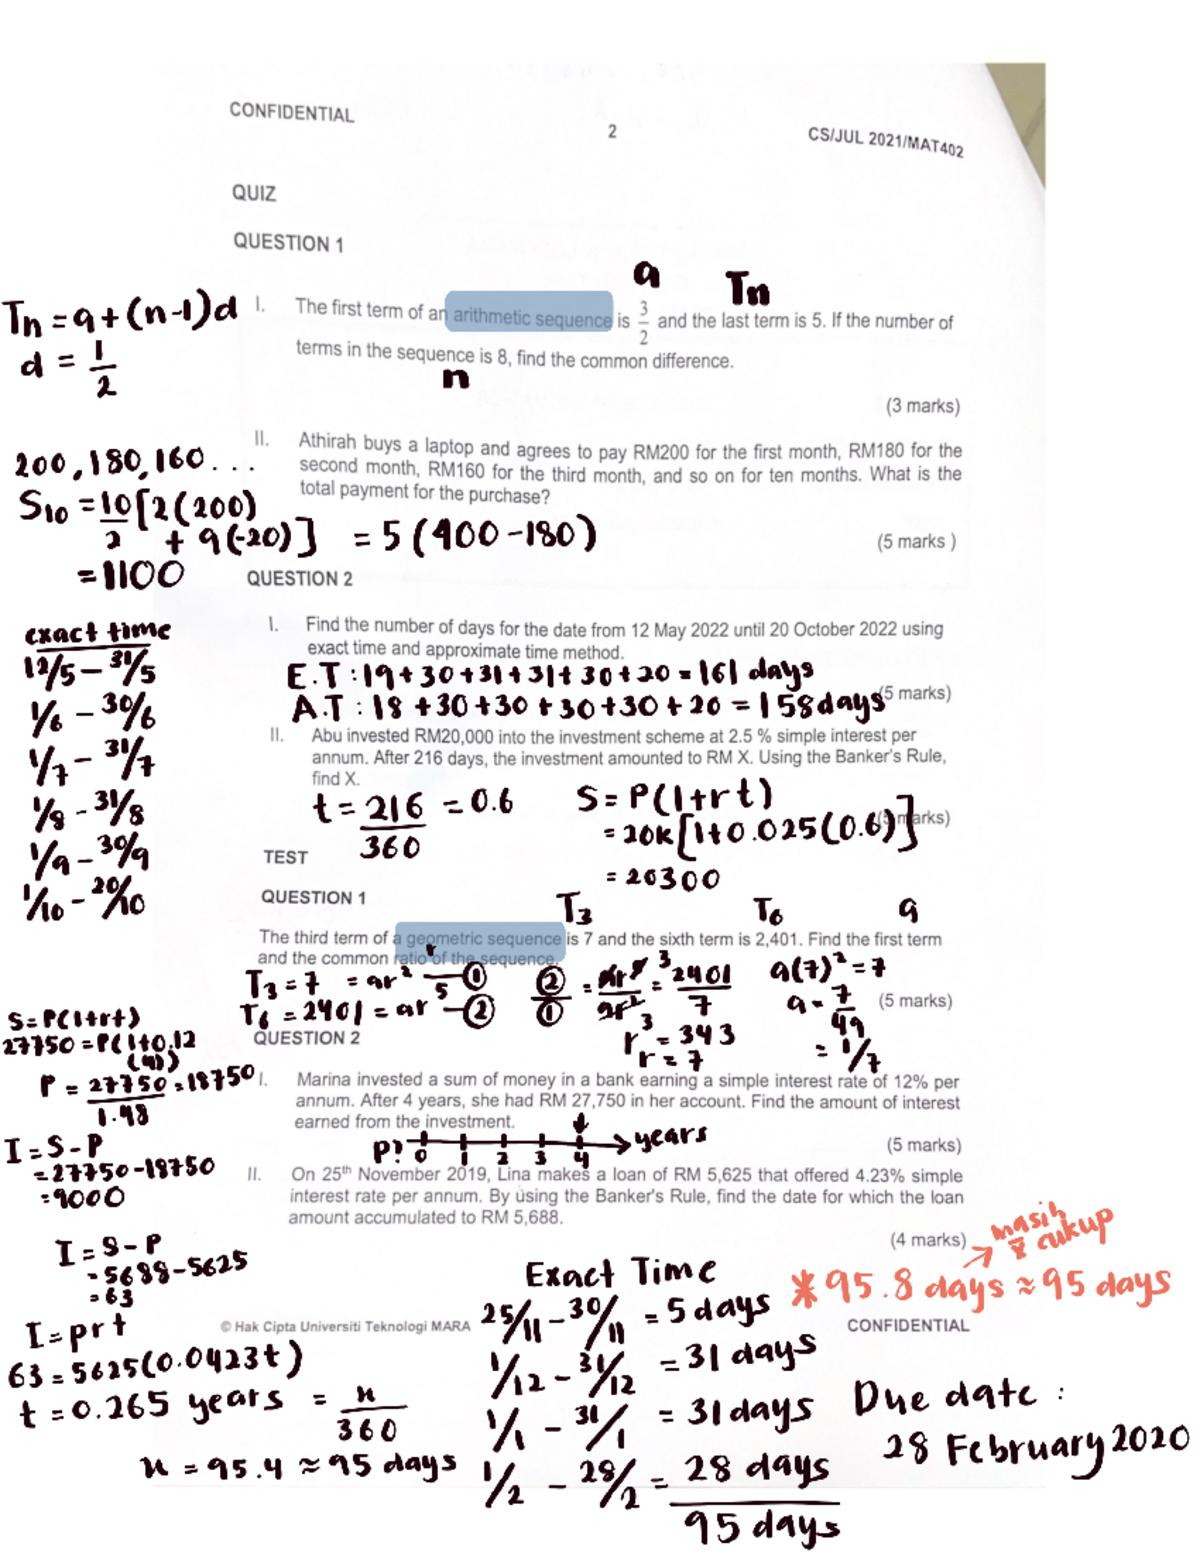 CONFIDENTIAL
2
CS/JUL 2021/MAT402
QUIZ
QUESTION 1
a Tn
Tn = a + (n-1)d
d = 1/2
I. The first term of an arithmetic sequence is 3/2 and the last term is 5. If the number of
terms in the sequence is 8, find the common difference.
n
(3 marks)
II. Athirah buys a laptop and agrees to pay RM200 for the first month, RM180 for the
second month, RM160 for the third month, and so on for ten months. What is the
total payment for the purchase?
(5 marks )
200, 180, 160 . . .
S10 = 10/2 [2(200)
+ 9(-20)] = 5(400-180)
= 1100
QUESTION 2
I. Find the number of days for the date from 12 May 2022 until 20 October 2022 using
exact time and approximate time method.
E.T : 19 + 30 + 31 + 31 + 30 + 20 = 161 days
A.T : 18 + 30 + 30 + 30 + 30 + 20 = 158 days
(5 marks)
exact time
12/5 - 31/5
1/6 - 30/6
1/7 - 31/7
1/8 - 31/8
1/9 - 30/9
1/10 - 20/10
II. Abu invested RM20,000 into the investment scheme at 2.5 % simple interest per
annum. After 216 days, the investment amounted to RM X. Using the Banker's Rule,
find X.
marks)
t = 216/360 = 0.6
S = P(1+rt)
= 20K[1+0.025(0.6)]
= 20300
TEST
QUESTION 1
T3 T6 a
The third term of a geometric sequence is 7 and the sixth term is 2,401. Find the first term
and the common ratio of the sequence.
r
(5 marks)
T3 = 7 = ar² — ①
T6 = 2401 = ar⁵ — ②
②/① = ar⁵/ar² = 2401/7
r³ = 343
r = 7
a(7)² = 7
a = 7/49
= 1/7
QUESTION 2
I. Marina invested a sum of money in a bank earning a simple interest rate of 12% per
annum. After 4 years, she had RM 27,750 in her account. Find the amount of interest
earned from the investment.
(5 marks)
P? 0 1 2 3 4 years
S = P(1+rt)
27750 = P(1+0.12
(4))
P = 27750/1.48 = 18750
I = S - P
= 27750 - 18750
= 9000
II. On 25th November 2019, Lina makes a loan of RM 5,625 that offered 4.23% simple
interest rate per annum. By using the Banker's Rule, find the date for which the loan
amount accumulated to RM 5,688.
(4 marks)
masih
x cukup
* 95.8 days ≈ 95 days
I = S - P
= 5688 - 5625
= 63
I = prt
63 = 5625(0.0423t)
t = 0.265 years = x/360
x = 95.4 ≈ 95 days
Exact Time
25/11 - 30/11 = 5 days
1/12 - 31/12 = 31 days
1/1 - 31/1 = 31 days
1/2 - 28/2 = 28 days
95 days
Due date :
28 February 2020
© Hak Cipta Universiti Teknologi MARA
CONFIDENTIAL